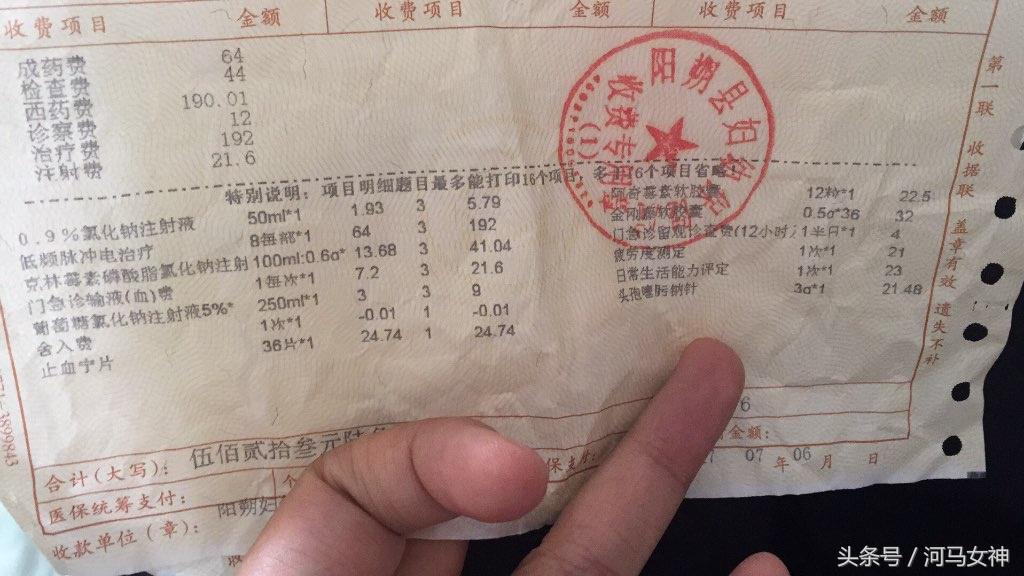 收费项目 金额 收费项目 金额 收费项目 金额
成药费 64
检查费 44
西药费 190.01
诊察费 12
治疗费 192
注射费 21.6
特别说明: 项目明细题目最多能打印16个项目, 多于16个项目省略
0.9%氯化钠注射液 50ml*1 1.93 3 5.79
低频脉冲电治疗 8每部*1 64 3 192
克林霉素磷酸脂氯化钠注射 100ml:0.6g* 13.68 3 41.04
门急诊输液(血)费 1每次*1 7.2 3 21.6
葡萄糖氯化钠注射液5%* 250ml*1 3 3 9
舍入费 1次*1 -0.01 1 -0.01
止血宁片 36片*1 24.74 1 24.74
阿奇霉素软胶囊 12粒*1 22.5
金刚藤软胶囊 0.5g*36 32
门急诊留观诊查费(12小时 1半日*1 4
疲劳度测定 1次*1 21
日常生活能力评定 1次*1 23
头孢噻肟钠针 3g*1 21.48
阳朔县妇幼
收费专用章
(1)
第一联 收据联 盖章有效 遗失不补
合计(大写): 伍佰贰拾叁元陆角
6
医保统筹支付: 个 保支付: 金额:
收款单位(章): 阳朔妇 07 年 06 月 日
头条号 / 河马女神